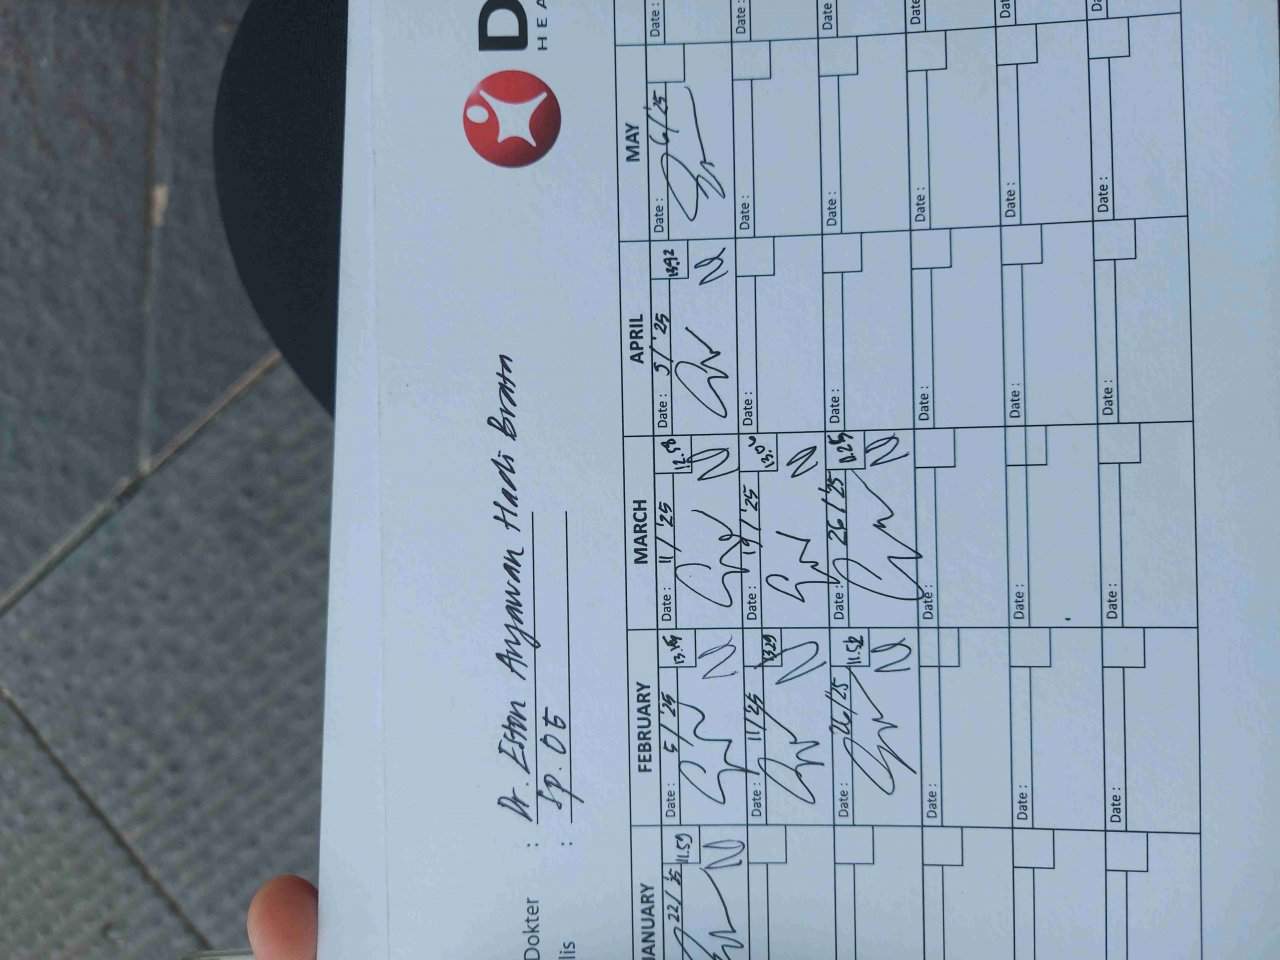 D
HEA
Dokter : Dr. Eston Aryawan Hadi Brata
lis : Sp. OT
JANUARY FEBRUARY MARCH APRIL MAY
22/'25 11.59 Date : 5/'25 Date : 11/'25 12.58 Date : 5/'25 Date : 6/'25 Date :
Date : 11/25 13.29 Date : 19/'25 13.06 Date : Date : Date :
Date : 26/25 11.52 Date : 26/'25 11.25 Date : Date : Date
Date : Date : Date : Date : Date
Date : Date : Date : Date : Dat
Date : Date : Date : Date : Da